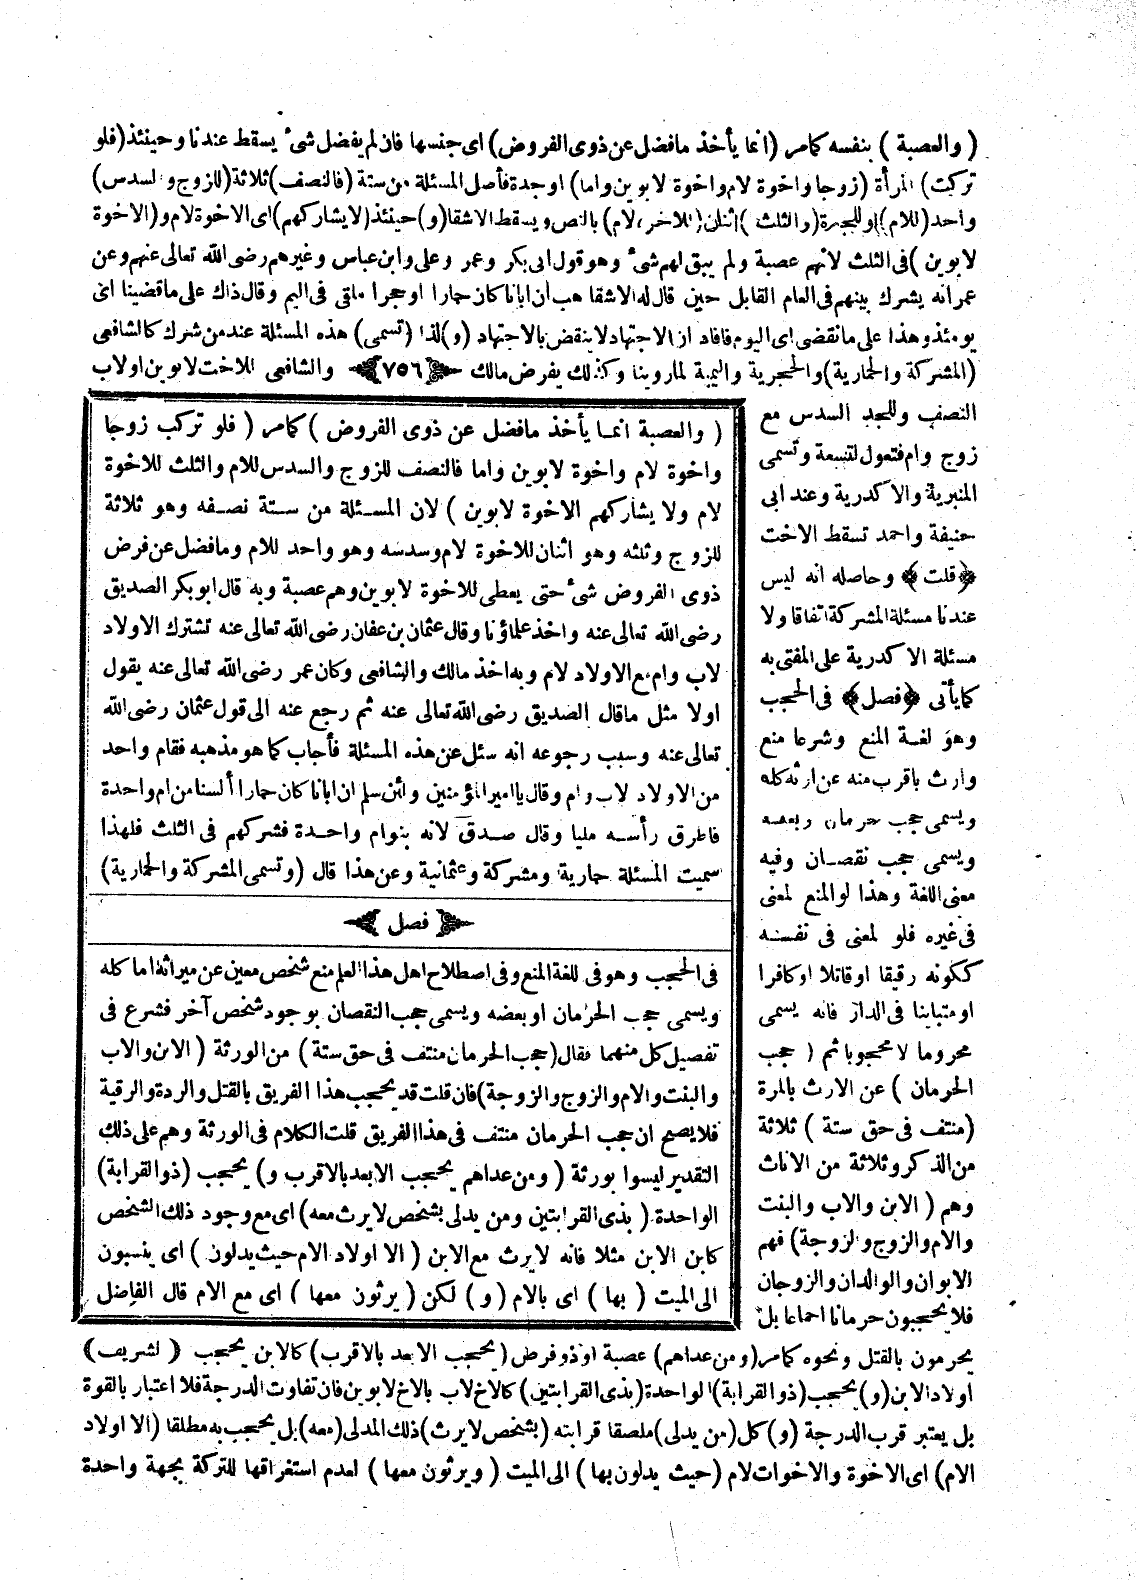 ( والعصبة ) بنفسه كمامر (انما يأخذ مافضل عن ذوى الفروض) اى جنسها فان لم يفضل شئ يسقط عندنا وحينئذ (فلو
تركت) المرأة (زوجا واخوة لام واخوة لابوين واما) اوجدة فأصل المسئلة من ستة (فالنصف) ثلاثة (للزوج والسدس)
واحد (للام) اوللجدة (والثلث) اثنان (للاخوة لام) بالنص ويسقط الاشقا (و) حينئذ (لايشاركهم) اى الاخوة لام و(الاخوة
لابوين) فى الثلث لانهم عصبة ولم يبق لهم شئ وهو قول ابى بكر وعمر وعلى وابن عباس وغيرهم رضى الله تعالى عنهم وعن
عمر انه يشرك بينهم فى العام القابل حين قال له الاشقا هب ان ابانا كان حمارا اوحجرا ملقى فى اليم وقال ذاك على ماقضينا اى
يومئذ وهذا على مانقضى اى اليوم فافاد ان الاجتهاد لاينقض بالاجتهاد (و) لذا (تسمى) هذه المسئلة عند من شرك كالشافعى
(المشركة والحمارية) والحجرية واليمية لماروينا وكذلك يفرض مالك ﴿٧٥٦﴾ والشافعى للاخت لابوين اولاب
النصف وللجد السدس مع
زوج وام فتعول لتسعة وتسمى
المنبرية والاكدرية وعند ابى
حنيفة واحمد تسقط الاخت
﴿قلت﴾ وحاصله انه ليس
عندنا مسئلة المشركة اتفاقا ولا
مسئلة الاكدرية على المفتى به
كمايأتى ﴿فصل﴾ فى الحجب
وهو لغة المنع وشرعا منع
وارث باقرب منه عن ارثه كله
ويسمى حجب حرمان وبعضه
ويسمى حجب نقصان وفيه
معنى اللغة وهذا لو المنع لمعنى
فى غيره فلو لمعنى فى نفسه
ككونه رقيقا اوقاتلا اوكافرا
او متباينا فى الدار فانه يسمى
محروما لا محجوبا ثم ( حجب
الحرمان ) عن الارث بالمرة
(منتف فى حق ستة ) ثلاثة
من الذكر وثلاثة من الاناث
وهم ( الابن والاب والبنت
والام والزوج والزوجة) فهم
الابوان والوالدان والزوجان
فلا يحجبون حرمانا اجماعا بل
( والعصبة انما يأخذ مافضل عن ذوى الفروض ) كمامر ( فلو تركب زوجا
واخوة لام واخوة لابوين واما فالنصف للزوج والسدس للام والثلث للاخوة
لام ولا يشاركهم الاخوة لابوين ) لان المسئلة من ستة نصفه وهو ثلاثة
للزوج وثلثه وهو اثنان للاخوة لام وسدسه وهو واحد للام ومافضل عن فرض
ذوى الفروض شئ حتى يعطى للاخوة لابوين وهم عصبة وبه قال ابو بكر الصديق
رضى الله تعالى عنه واخذ علماؤنا وقال عثمان بن عفان رضى الله تعالى عنه تشترك الاولاد
لاب وام مع الاولاد لام وبه اخذ مالك والشافعى وكان عمر رضى الله تعالى عنه يقول
اولا مثل ماقال الصديق رضى الله تعالى عنه ثم رجع عنه الى قول عثمان رضى الله
تعالى عنه وسبب رجوعه انه سئل عن هذه المسئلة فأجاب كما هو مذهبه فقام واحد
من الاولاد لاب وام وقال ياامير المؤمنين ولئن سلم ان ابانا كان حمارا ألسنا من ام واحدة
فاطرق رأسه مليا وقال صدق لانه بنوام واحدة فشركهم فى الثلث فلهذا
سميت المسئلة حمارية ومشركة وعثمانية وعن هذا قال (وتسمى المشركة والحمارية)
﴿ فصل ﴾
فى الحجب وهو فى للغة المنع وفى اصطلاح اهل هذا العلم منع شخص معين عن ميراثه اما كله
ويسمى حجب الحرمان اوبعضه ويسمى حجب النقصان بوجود شخص آخر فشرع فى
تفصيل كل منهما فقال (حجب الحرمان منتف فى حق ستة ) من الورثة ( الابن والاب
والبنت والام والزوج والزوجة) فان قلت قد يحجب هذا الفريق بالقتل والردة والرقية
فلايصح ان حجب الحرمان منتف فى هذا الفريق قلت الكلام فى الورثة وهم على ذلك
التقدير ليسوا بورثة ( ومن عداهم يحجب الابعد بالاقرب و) يحجب (ذوالقرابة)
الواحدة ( بذى القرابتين ومن يدلى بشخص لايرث معه) اى مع وجود ذلك الشخص
كابن الابن مثلا فانه لايرث مع الابن ( الا اولاد الام حيث يدلون ) اى ينسبون
الى الميت ( بها ) اى بالام ( و) لكن ( يرثون معها ) اى مع الام قال الفاضل
يحرمون بالقتل ونحوه كمامر (ومن عداهم) عصبة اوذوفرض (يحجب الابعد بالاقرب) كالابن يحجب ( الشريف)
اولاد الابن (و) يحجب (ذوالقرابة) الواحدة (بذى القرابتين) كالاخ لاب بالاخ لابوين فان تفاوت الدرجة فلا اعتبار بالقوة
بل يعتبر قرب الدرجة (و) كل (من يدلى) ملصقا قرابته (بشخص لايرث) ذلك المدلى (معه) بل يحجب به مطلقا (الا اولاد
الام) اى الاخوة والاخوات لام (حيث يدلون بها) الى الميت ( ويرثون معها ) لعدم استغراقها للتركة بجهة واحدة